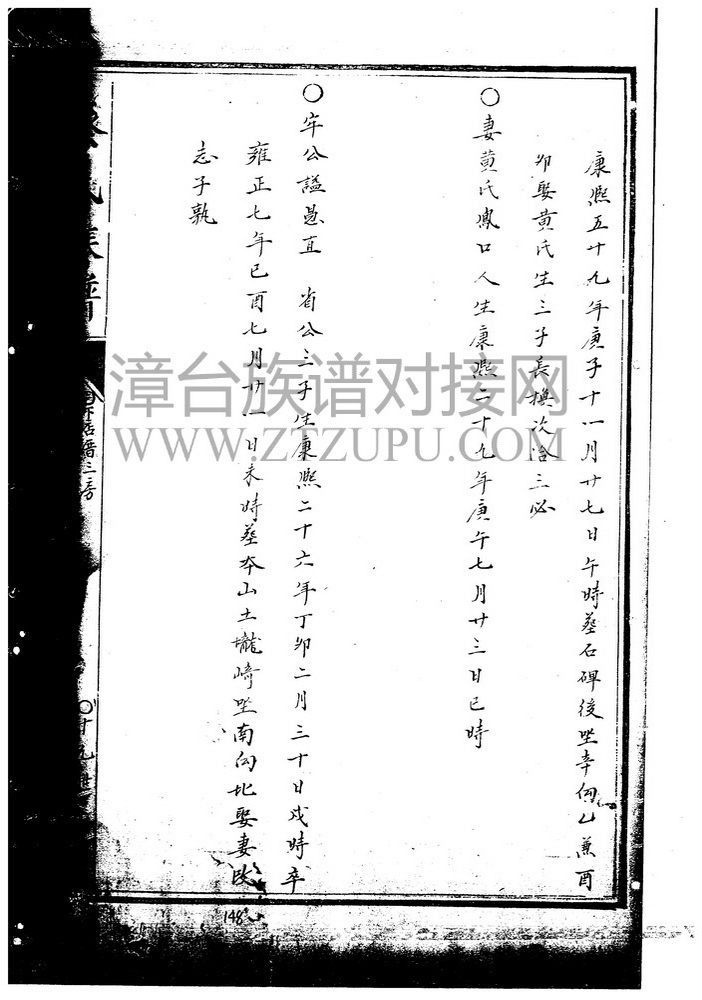 康熙五十九年庚子十一月廿七日午時塟石碑後坐辛向乙兼酉
卯娶黄氏生三子長換次洽三必
〇妻黄氏鳳口人生康熙二十九年庚午七月廿三日巳時
〇牢公諡愚直 省公三子生康熙二十六年丁卯二月三十日戌時卒
雍正七年己酉七月廿一日未時塟本山土壠崎坐南向北娶妻改
志子孰
氏族譜
三房
漳台族谱对接网
WWW.ZTZUPU.COM
148